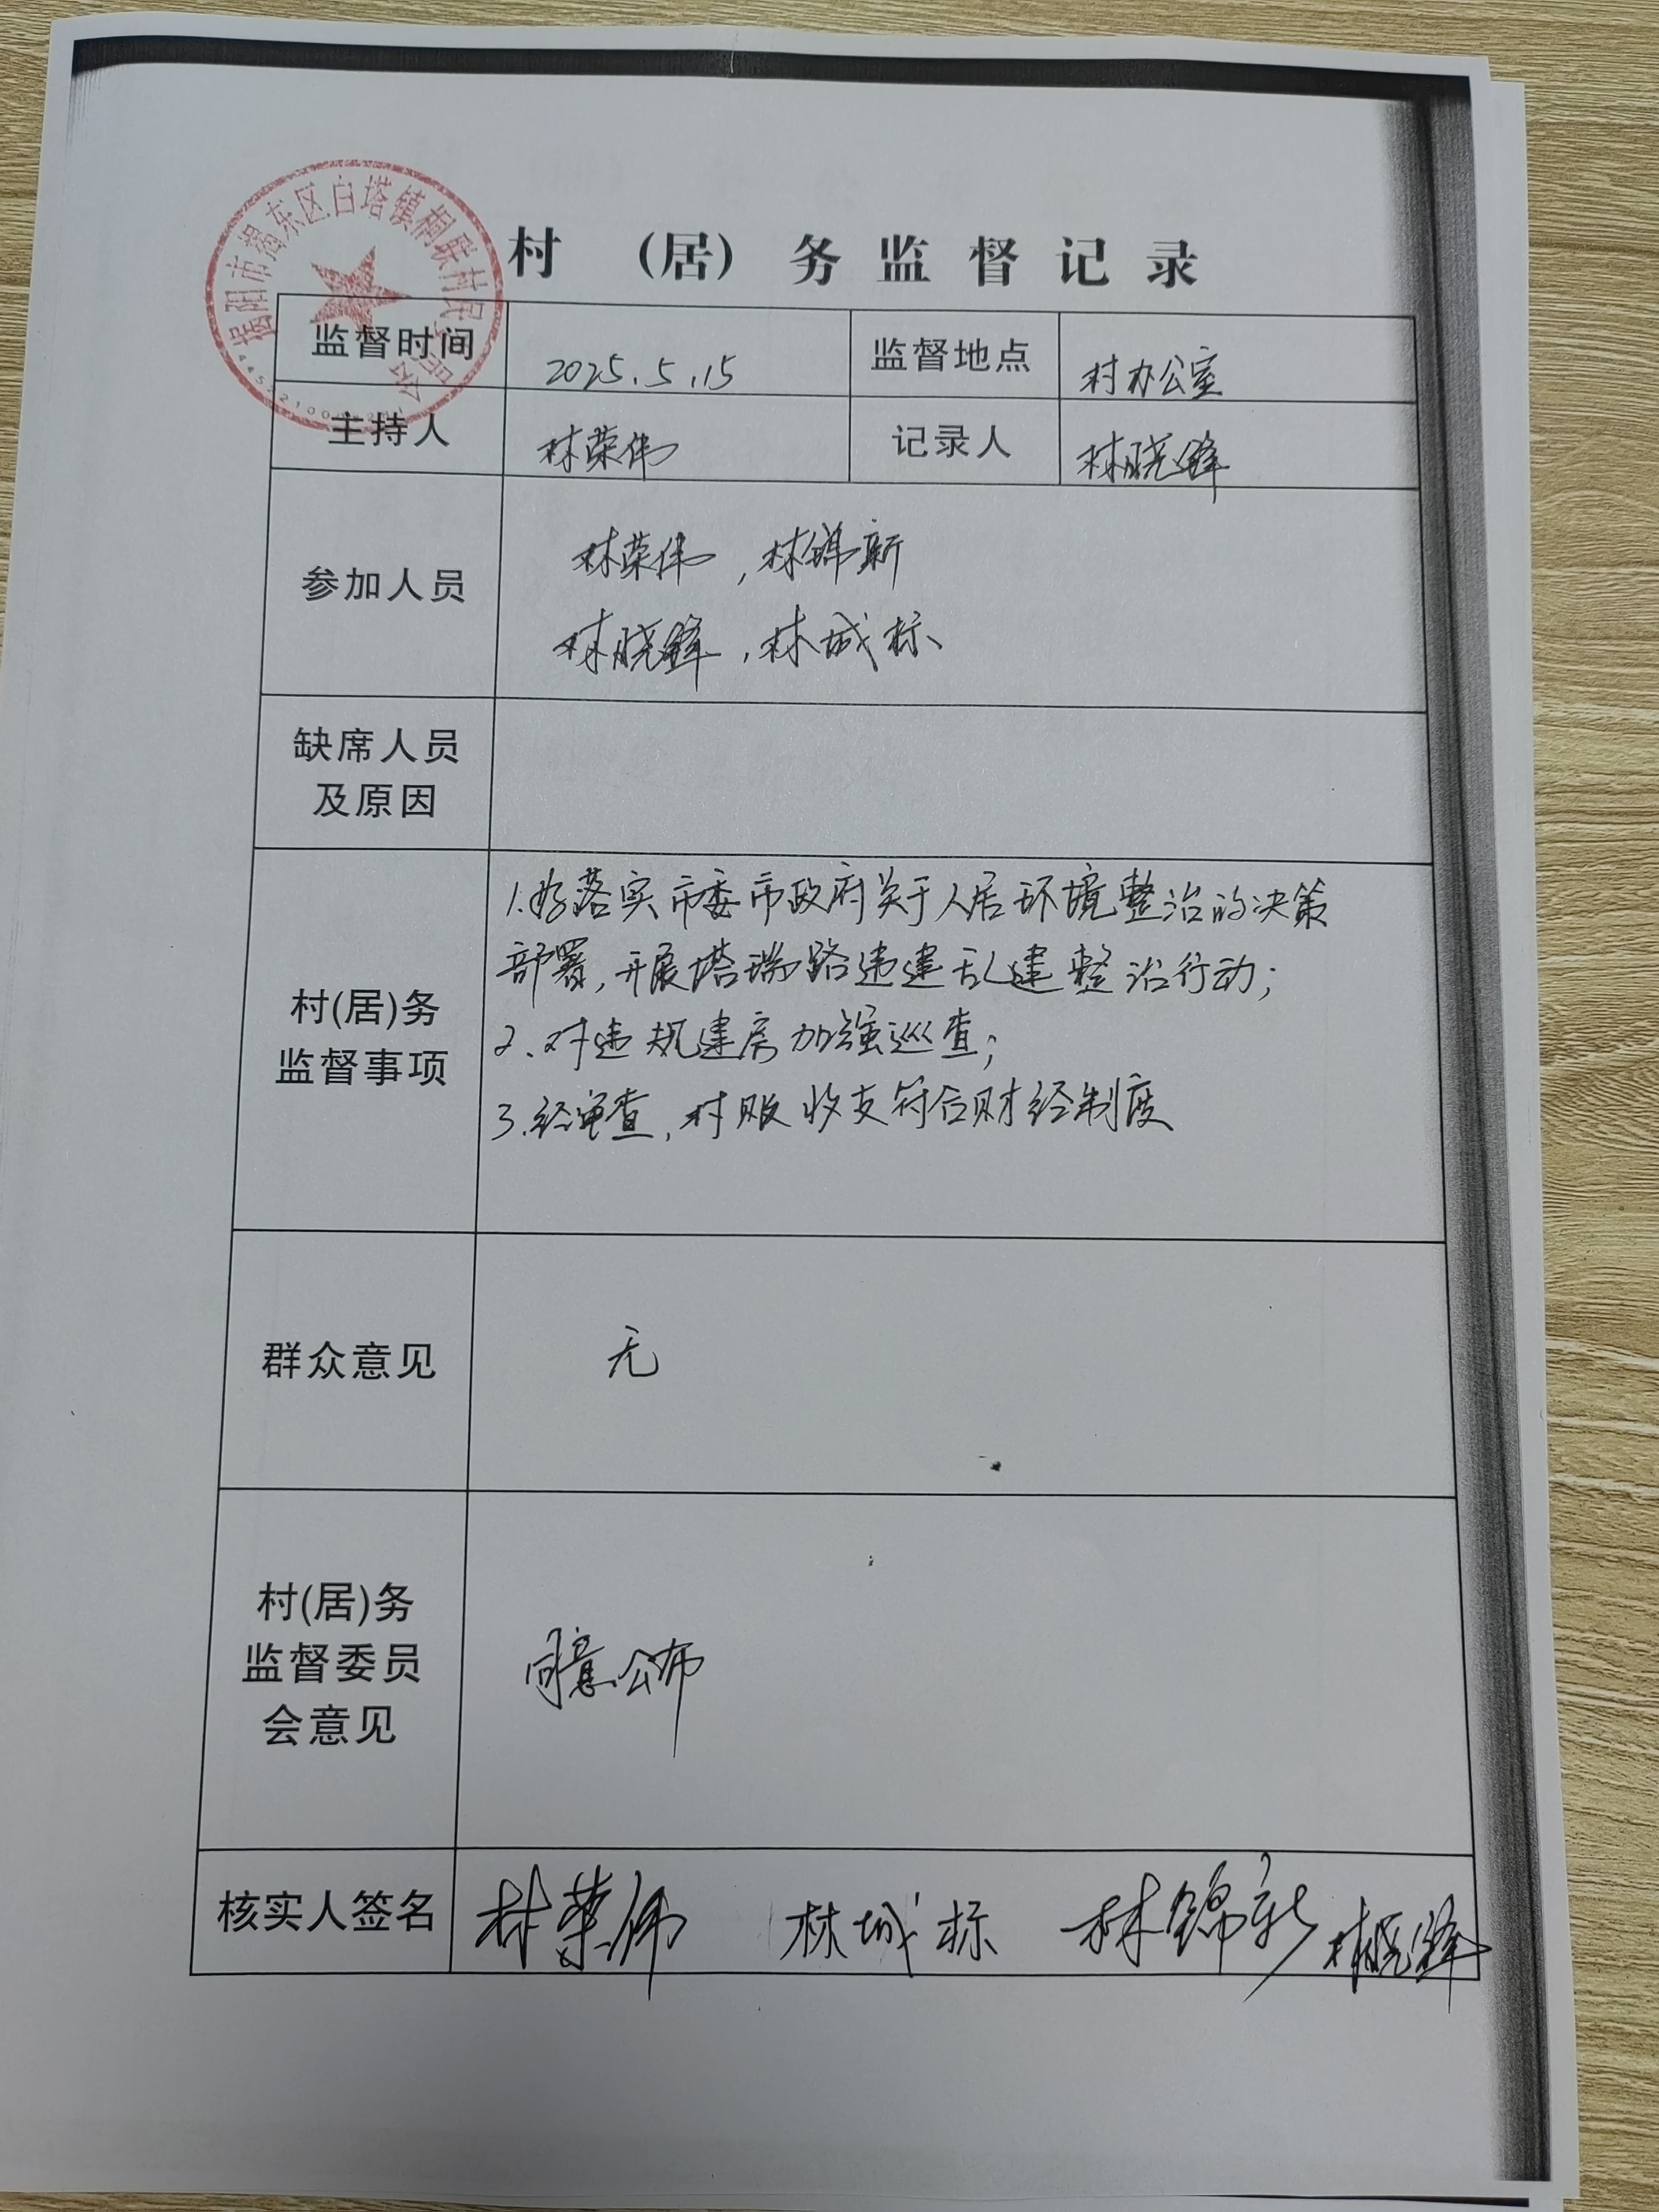 揭阳市揭东区白塔镇桐联村民委员会
村 (居) 务监督记录
监督时间 2025.5.15 监督地点 村办公室
主持人 林荣伟 记录人 林晓锋
参加人员
林荣伟,林锦新
林晓锋,林城标
缺席人员
及原因
村(居)务
监督事项
1.为落实市委市政府关于人居环境整治的决策
部署,开展塔瑞路违建乱建整治行动;
2.对违规建房加强巡查;
3.经审查,村账收支符合财经制度
群众意见 无
村(居)务
监督委员
会意见
同意公布
核实人签名 林荣伟 林城标 林锦新 林晓锋